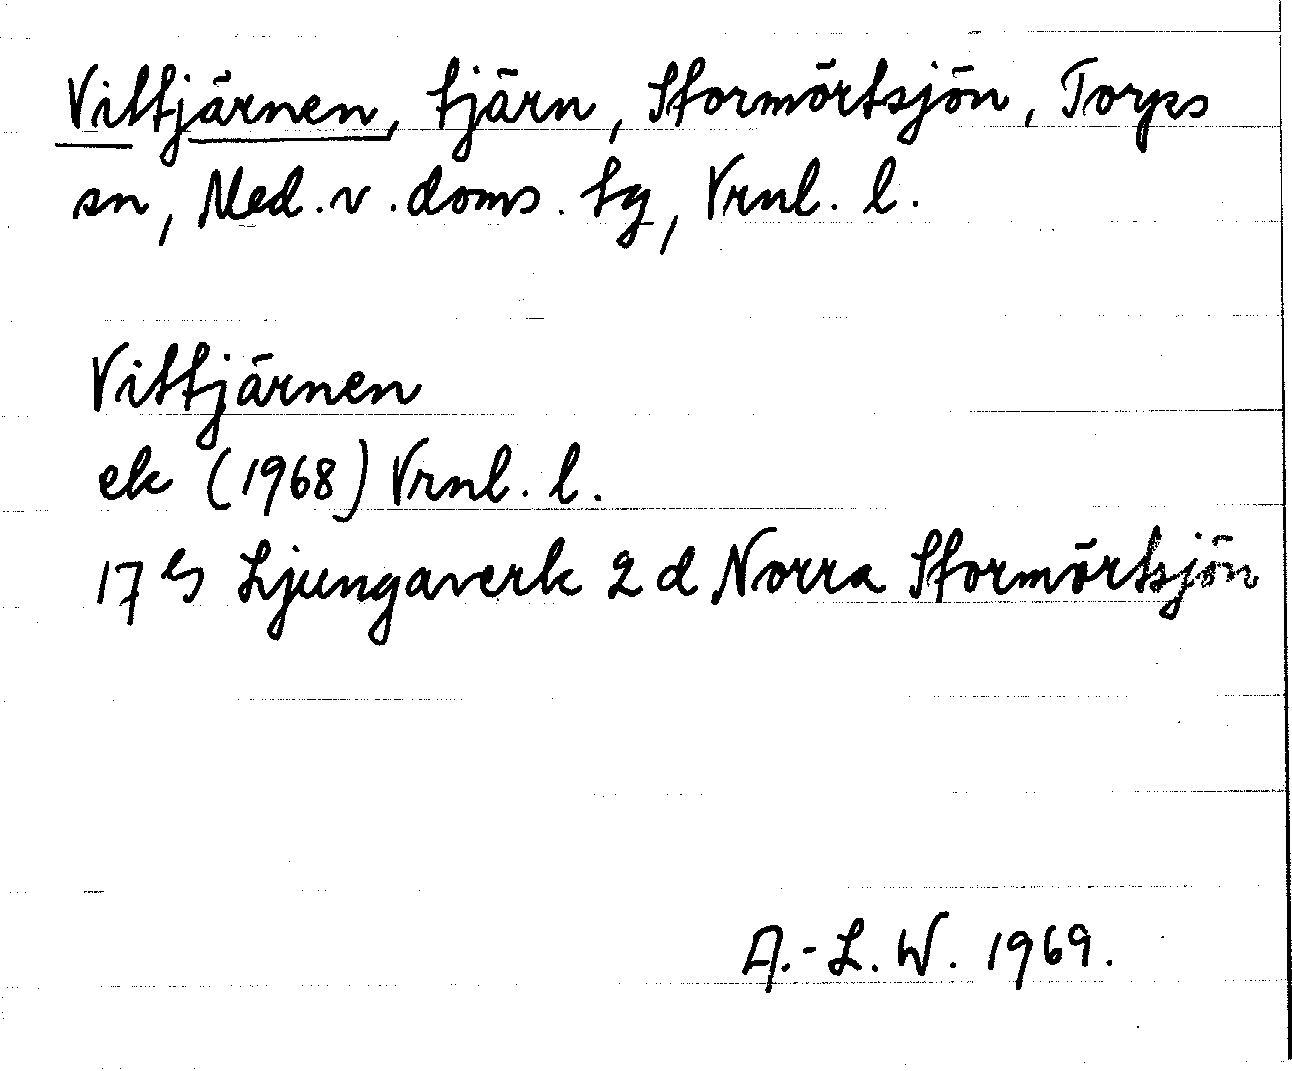 Vittjärnen, tjärn, Stormörtsjön, Torps
sn, Med. v. doms. tg, Vrnl. l.
Vittjärnen
ek (1968) Vrnl. l.
17 G Ljungaverk 2 d Norra Stormörtsjön
A.-L. W. 1969.